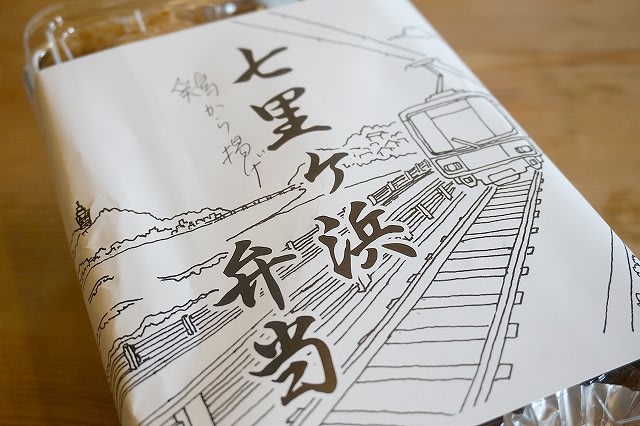 七里ヶ浜
弁当
鶏から揚げ